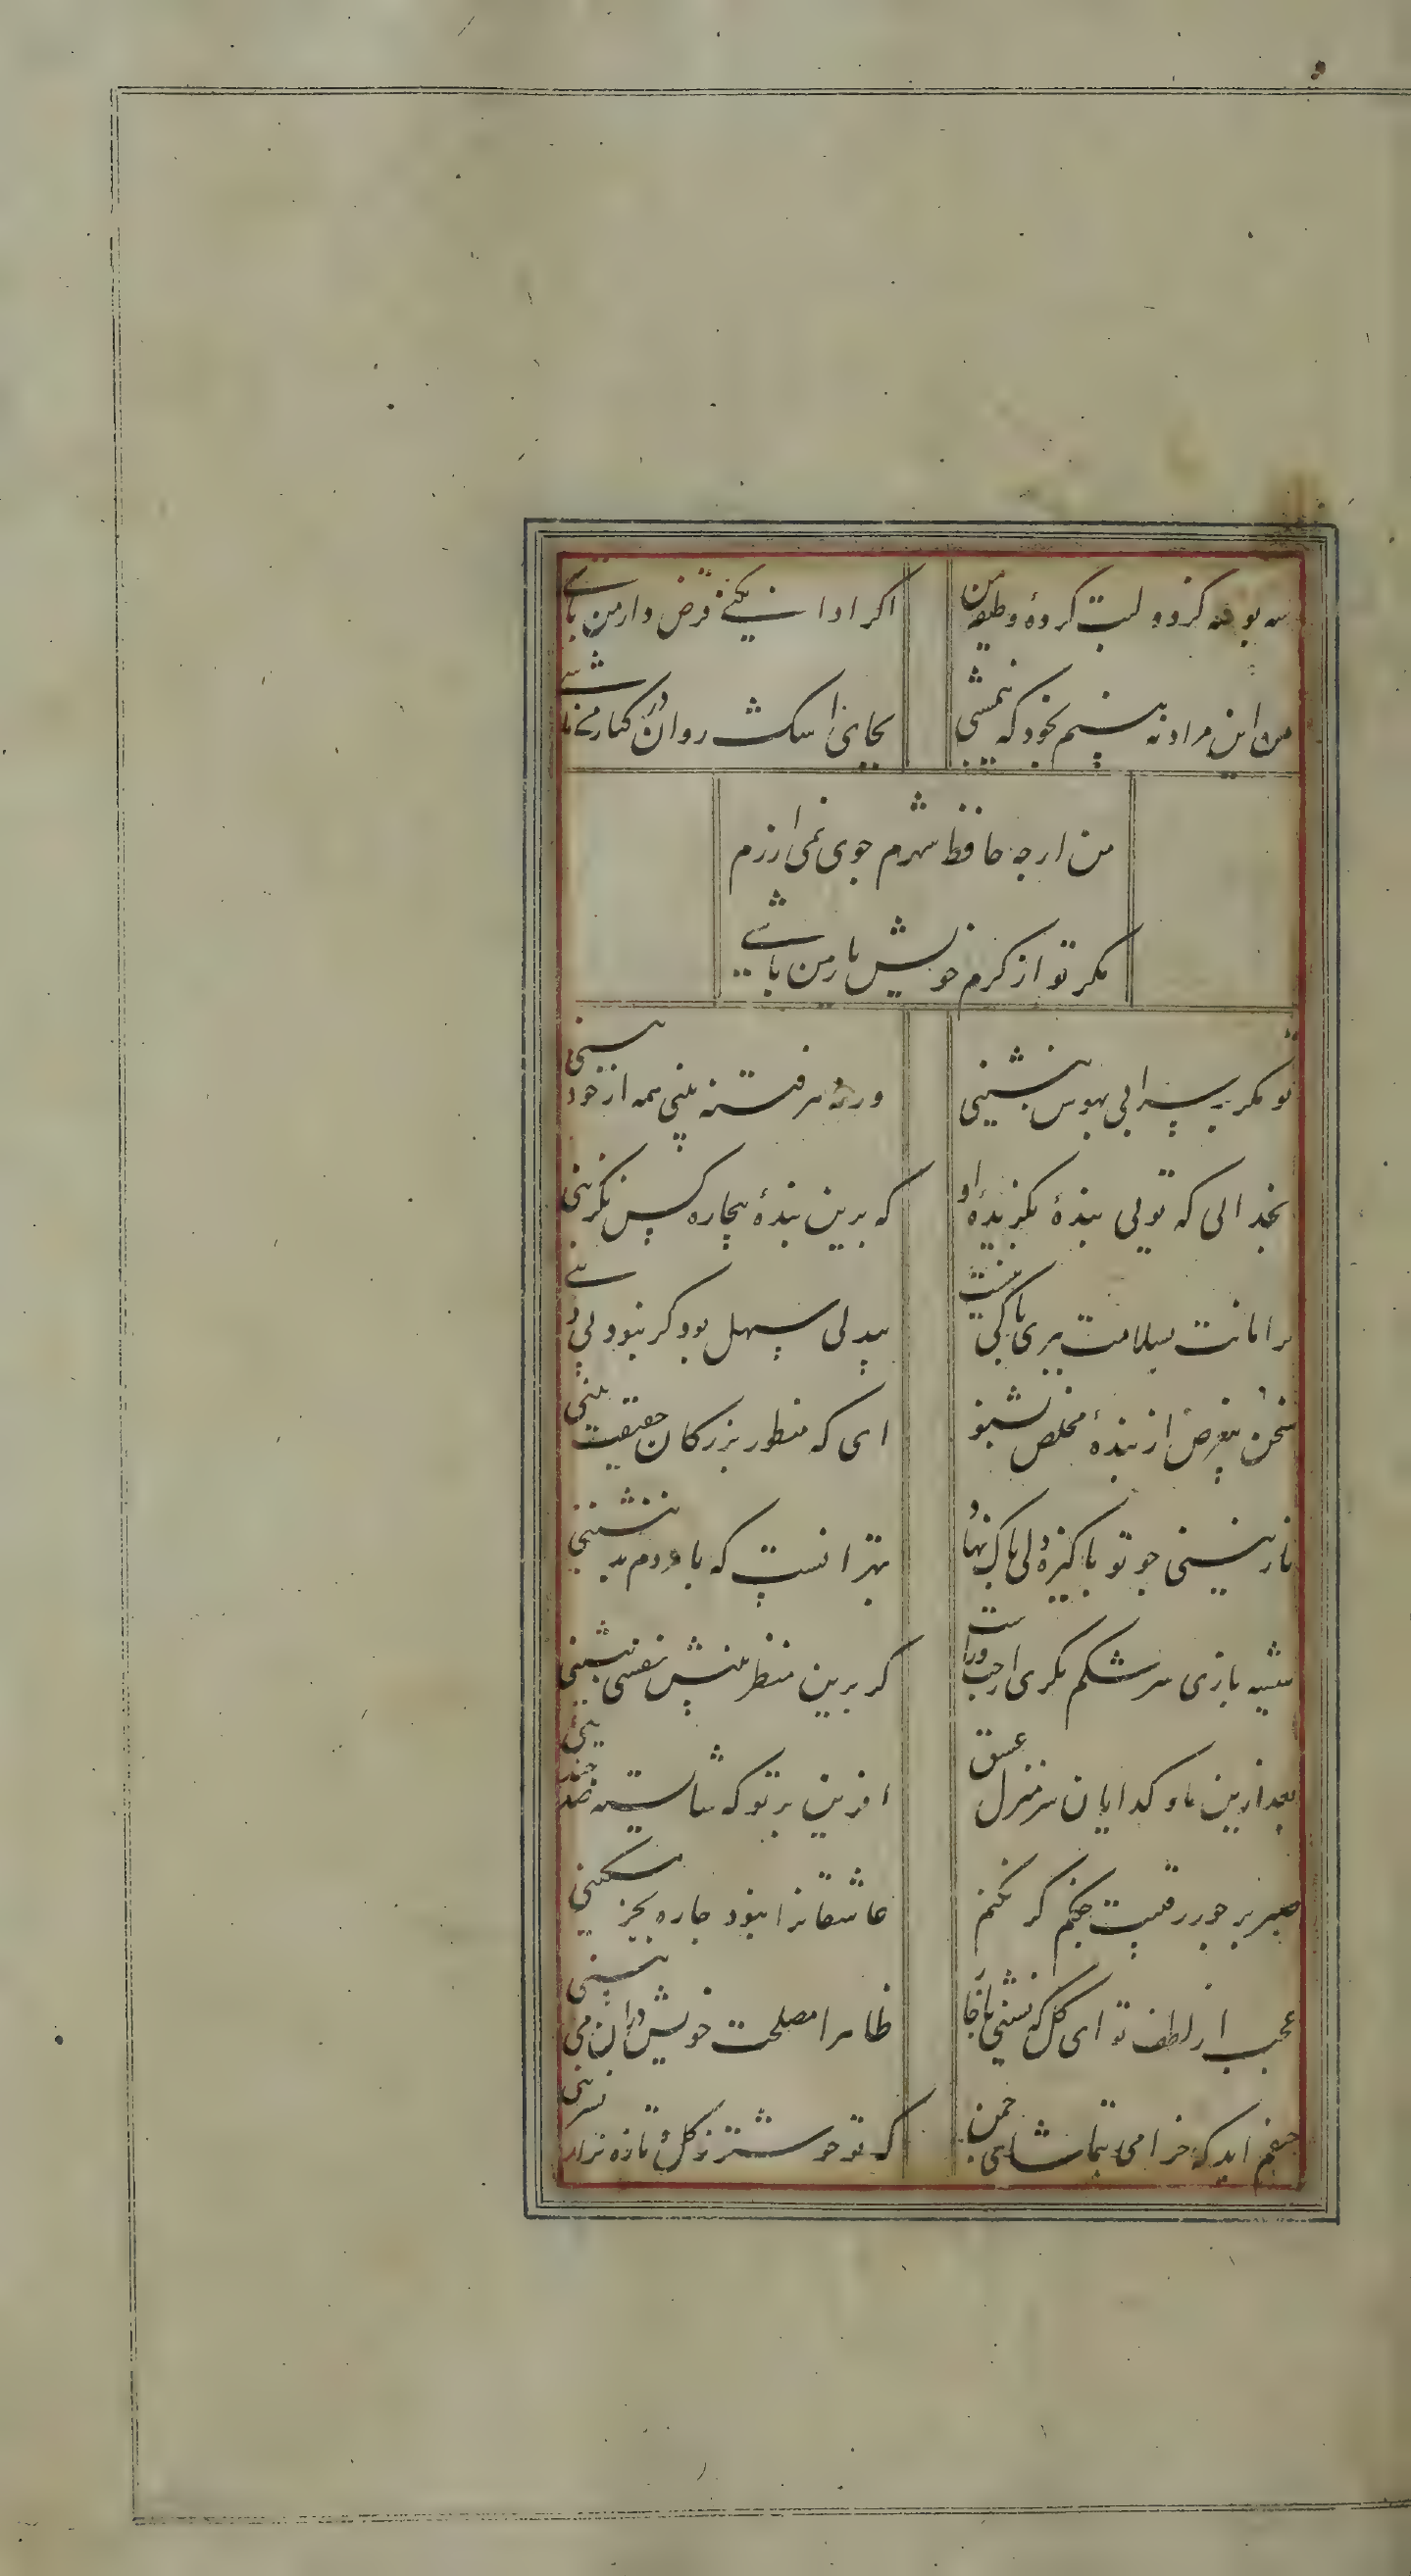 سه بوسه کز دو لبت کرده وظیفه من
اکر ادا نکنے قرض دار من باشے
من این مراد نه بینم بخود که نیمشبی
بجای اشک روان در کنار من باشے
من ارچه حافظ شهرم جوی نمی ارزم
مکر تو از کرم خویش یار من باشے
تو مکر بر لب ابی بهوس بنشینی
ورنه هر فتنه که بینی همه از خود بینی
بخدائی که توئی بندهٔ بکزیدهٔ او
که برین بندهٔ بیچاره کسی نکزینی
کر امانت بسلامت ببری باکی نیست
بیدلی سهل بود کر نبود بی دینے
سخن بیغرض از بندهٔ مخلص بشنو
ای که منظور بزرکان حقیقت بینی
نازنینی چو تو پاکیزه دل پاک نهاد
بهتر انست که با مردم بد ننشینی
شیشه بازی سرشکم نکری از چپ و راست
کر برین منظر بینش نفسی بنشینی
بعد ازین ما و کدایان سر منزل عشق
افرین بر تو که شایسته صد چندینی
صبر بر جور رقیبت چکنم کر نکنم
عاشقانرا نبود چاره بجز مسکینی
عجب از لطف تو ای کل که نشینی با خار
ظاهرا مصلحت خویش در ان می بینی
حیفم اید که خرامی بتماشای چمن
که تو خوشتر ز کل و تازه تر از نسرینی